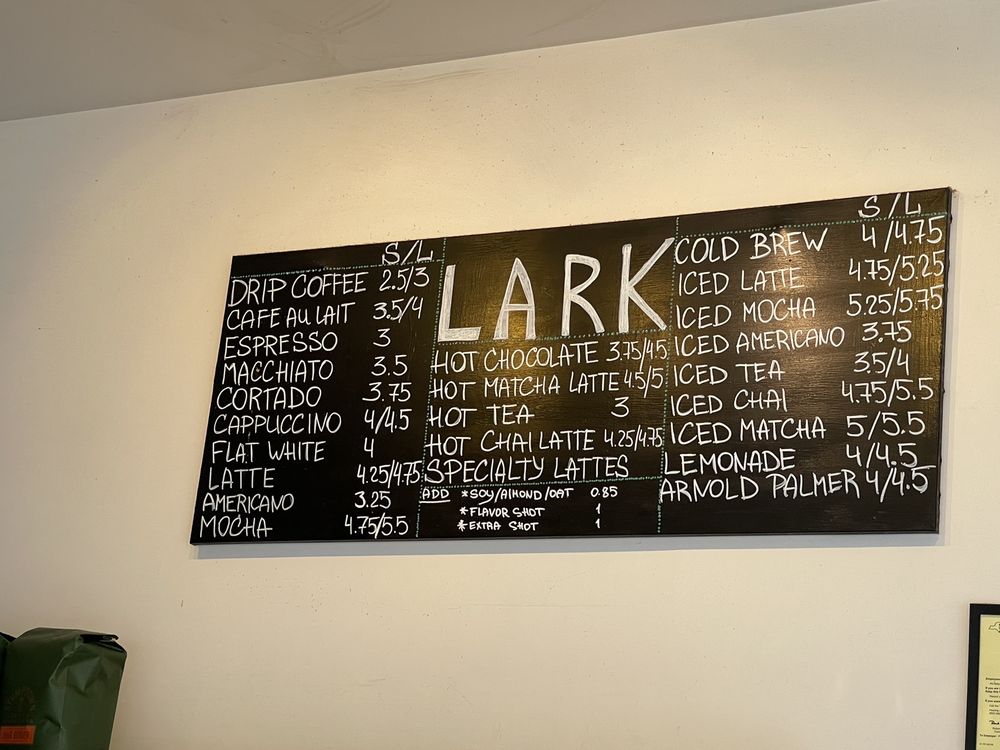 S/L
DRIP COFFEE 2.5/3
CAFE AU LAIT 3.5/4
ESPRESSO 3
MACCHIATO 3.5
CORTADO 3.75
CAPPUCCINO 4/4.5
FLAT WHITE 4
LATTE 4.25/4.75
AMERICANO 3.25
MOCHA 4.75/5.5
LARK
HOT CHOCOLATE 3.75/4.5
HOT MATCHA LATTE 4.5/5
HOT TEA 3
HOT CHAI LATTE 4.25/4.75
SPECIALTY LATTES
ADD *SOY/ALMOND/OAT 0.85
*FLAVOR SHOT 1
*EXTRA SHOT 1
S/L
COLD BREW 4/4.75
ICED LATTE 4.75/5.25
ICED MOCHA 5.25/5.75
ICED AMERICANO 3.75
ICED TEA 3.5/4
ICED CHAI 4.75/5.5
ICED MATCHA 5/5.5
LEMONADE 4/4.5
ARNOLD PALMER 4/4.5